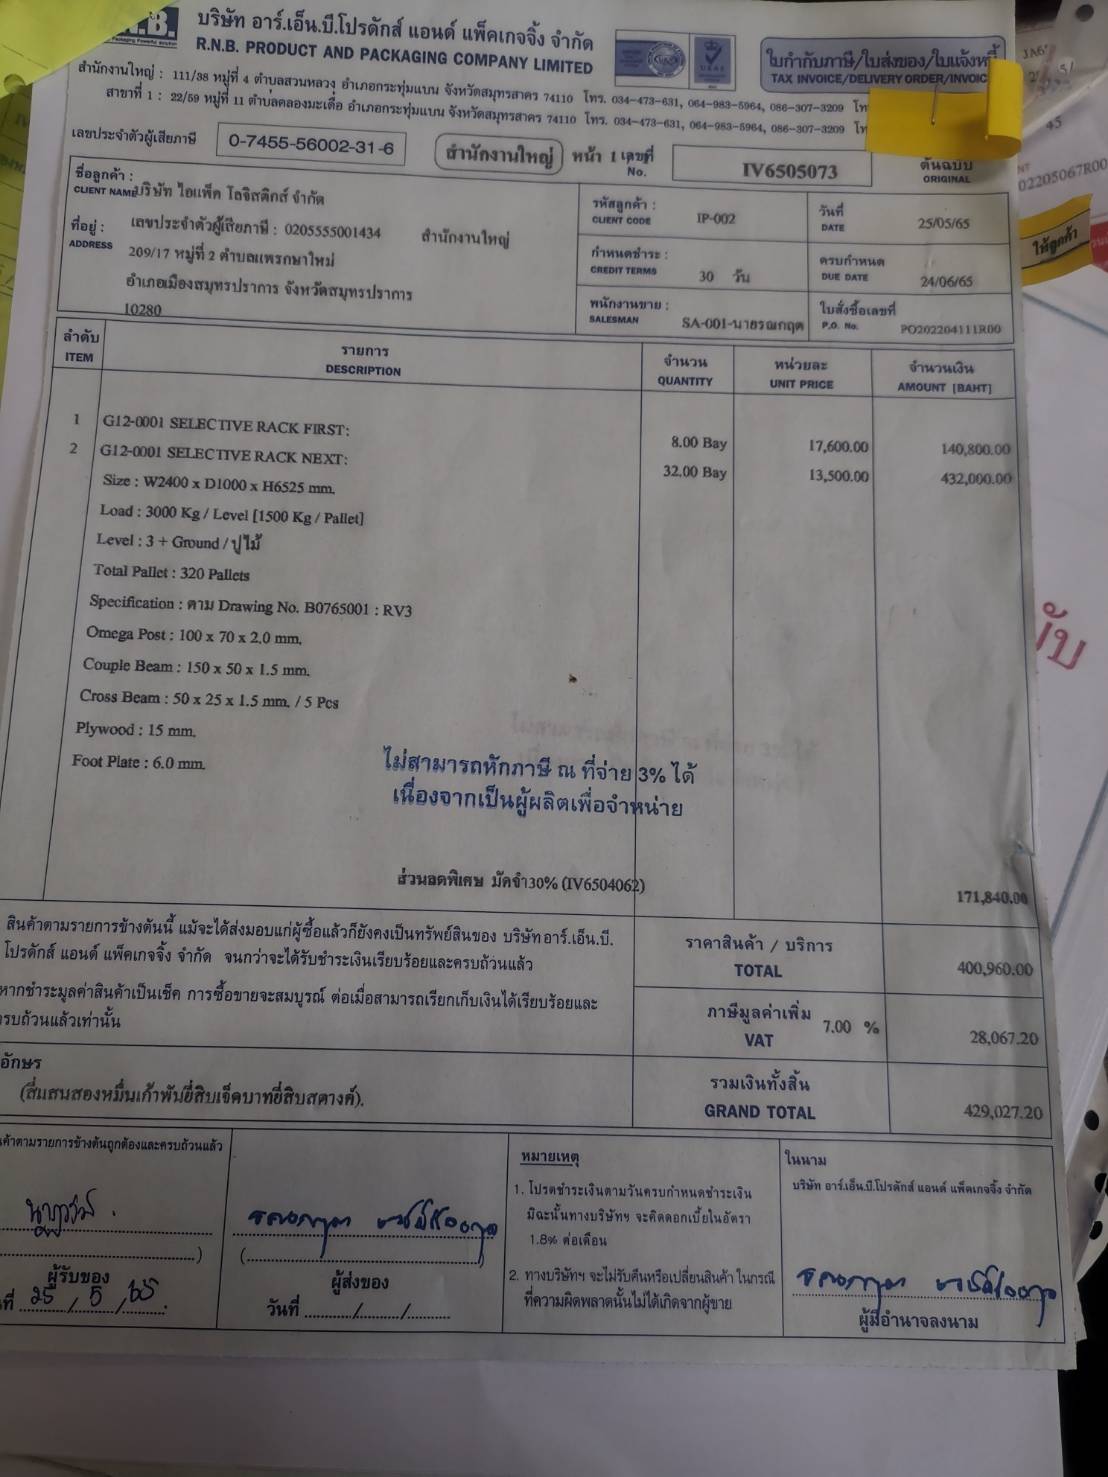 R.N.B.
บริษัท อาร์.เอ็น.บี.โปรดักส์ แอนด์ แพ็คเกจจิ้ง จำกัด
R.N.B. PRODUCT AND PACKAGING COMPANY LIMITED
ใบกำกับภาษี/ใบส่งของ/ใบแจ้งหนี้
TAX INVOICE/DELIVERY ORDER/INVOIC
สำนักงานใหญ่ : 111/38 หมู่ที่ 4 ตำบลสวนหลวง อำเภอกระทุ่มแบน จังหวัดสมุทรสาคร 74110 โทร. 034-473-631, 064-983-5964, 086-307-3209
สาขาที่ 1 : 22/59 หมู่ที่ 11 ตำบลคลองมะเดื่อ อำเภอกระทุ่มแบน จังหวัดสมุทรสาคร 74110 โทร. 034-473-631, 064-983-5964, 086-307-3209
เลขประจำตัวผู้เสียภาษี 0-7455-56002-31-6 สำนักงานใหญ่ หน้า 1 เลขที่ No. IV6505073 ต้นฉบับ
ORIGINAL
ชื่อลูกค้า :
CLIENT NAME บริษัท ไอแพ็ค โลจิสติกส์ จำกัด
ที่อยู่ : เลขประจำตัวผู้เสียภาษี : 0205555001434 สำนักงานใหญ่
ADDRESS 209/17 หมู่ที่ 2 ตำบลแพรกษาใหม่
อำเภอเมืองสมุทรปราการ จังหวัดสมุทรปราการ
10280
รหัสลูกค้า :
CLIENT CODE IP-002
วันที่
DATE 25/05/65
กำหนดชำระ :
CREDIT TERMS 30 วัน
ครบกำหนด
DUE DATE 24/06/65
พนักงานขาย :
SALESMAN SA-001-นายรณกฤต
ใบสั่งซื้อเลขที่
P.O. No. PO202204111R00
ลำดับ รายการ จำนวน หน่วยละ จำนวนเงิน
ITEM DESCRIPTION QUANTITY UNIT PRICE AMOUNT [BAHT]
1 G12-0001 SELECTIVE RACK FIRST: 8.00 Bay 17,600.00 140,800.00
2 G12-0001 SELECTIVE RACK NEXT: 32.00 Bay 13,500.00 432,000.00
Size : W2400 x D1000 x H6525 mm.
Load : 3000 Kg / Level [1500 Kg / Pallet]
Level : 3 + Ground / ปูไม้
Total Pallet : 320 Pallets
Specification : ตาม Drawing No. B0765001 : RV3
Omega Post : 100 x 70 x 2.0 mm.
Couple Beam : 150 x 50 x 1.5 mm.
Cross Beam : 50 x 25 x 1.5 mm. / 5 Pcs
Plywood : 15 mm.
Foot Plate : 6.0 mm.
ไม่สามารถหักภาษี ณ ที่จ่าย 3% ได้
เนื่องจากเป็นผู้ผลิตเพื่อจำหน่าย
ส่วนลดพิเศษ มัดจำ30% (IV6504062) 171,840.00
สินค้าตามรายการข้างต้นนี้ แม้จะได้ส่งมอบแก่ผู้ซื้อแล้วก็ยังคงเป็นทรัพย์สินของ บริษัทอาร์.เอ็น.บี.
โปรดักส์ แอนด์ แพ็คเกจจิ้ง จำกัด จนกว่าจะได้รับชำระเงินเรียบร้อยและครบถ้วนแล้ว
หากชำระมูลค่าสินค้าเป็นเช็ค การซื้อขายจะสมบูรณ์ ต่อเมื่อสามารถเรียกเก็บเงินได้เรียบร้อยและ
ครบถ้วนแล้วเท่านั้น
ราคาสินค้า / บริการ
TOTAL 400,960.00
ภาษีมูลค่าเพิ่ม
VAT 7.00 % 28,067.20
อักษร
(สี่แสนสองหมื่นเก้าพันยี่สิบเจ็ดบาทยี่สิบสตางค์).
รวมเงินทั้งสิ้น
GRAND TOTAL 429,027.20
ค้าตามรายการข้างต้นถูกต้องและครบถ้วนแล้ว
ผู้รับของ
ที่ 25 / 5 / 65
ผู้ส่งของ
วันที่ ......../......../........
หมายเหตุ
1. โปรดชำระเงินตามวันครบกำหนดชำระเงิน
มิฉะนั้นทางบริษัทฯ จะคิดดอกเบี้ยในอัตรา
1.8% ต่อเดือน
2. ทางบริษัทฯ จะไม่รับคืนหรือเปลี่ยนสินค้า ในกรณี
ที่ความผิดพลาดนั้นไม่ได้เกิดจากผู้ขาย
ในนาม
บริษัท อาร์.เอ็น.บี.โปรดักส์ แอนด์ แพ็คเกจจิ้ง จำกัด
ผู้มีอำนาจลงนาม
45
02205067R00
ให้ลูกค้า